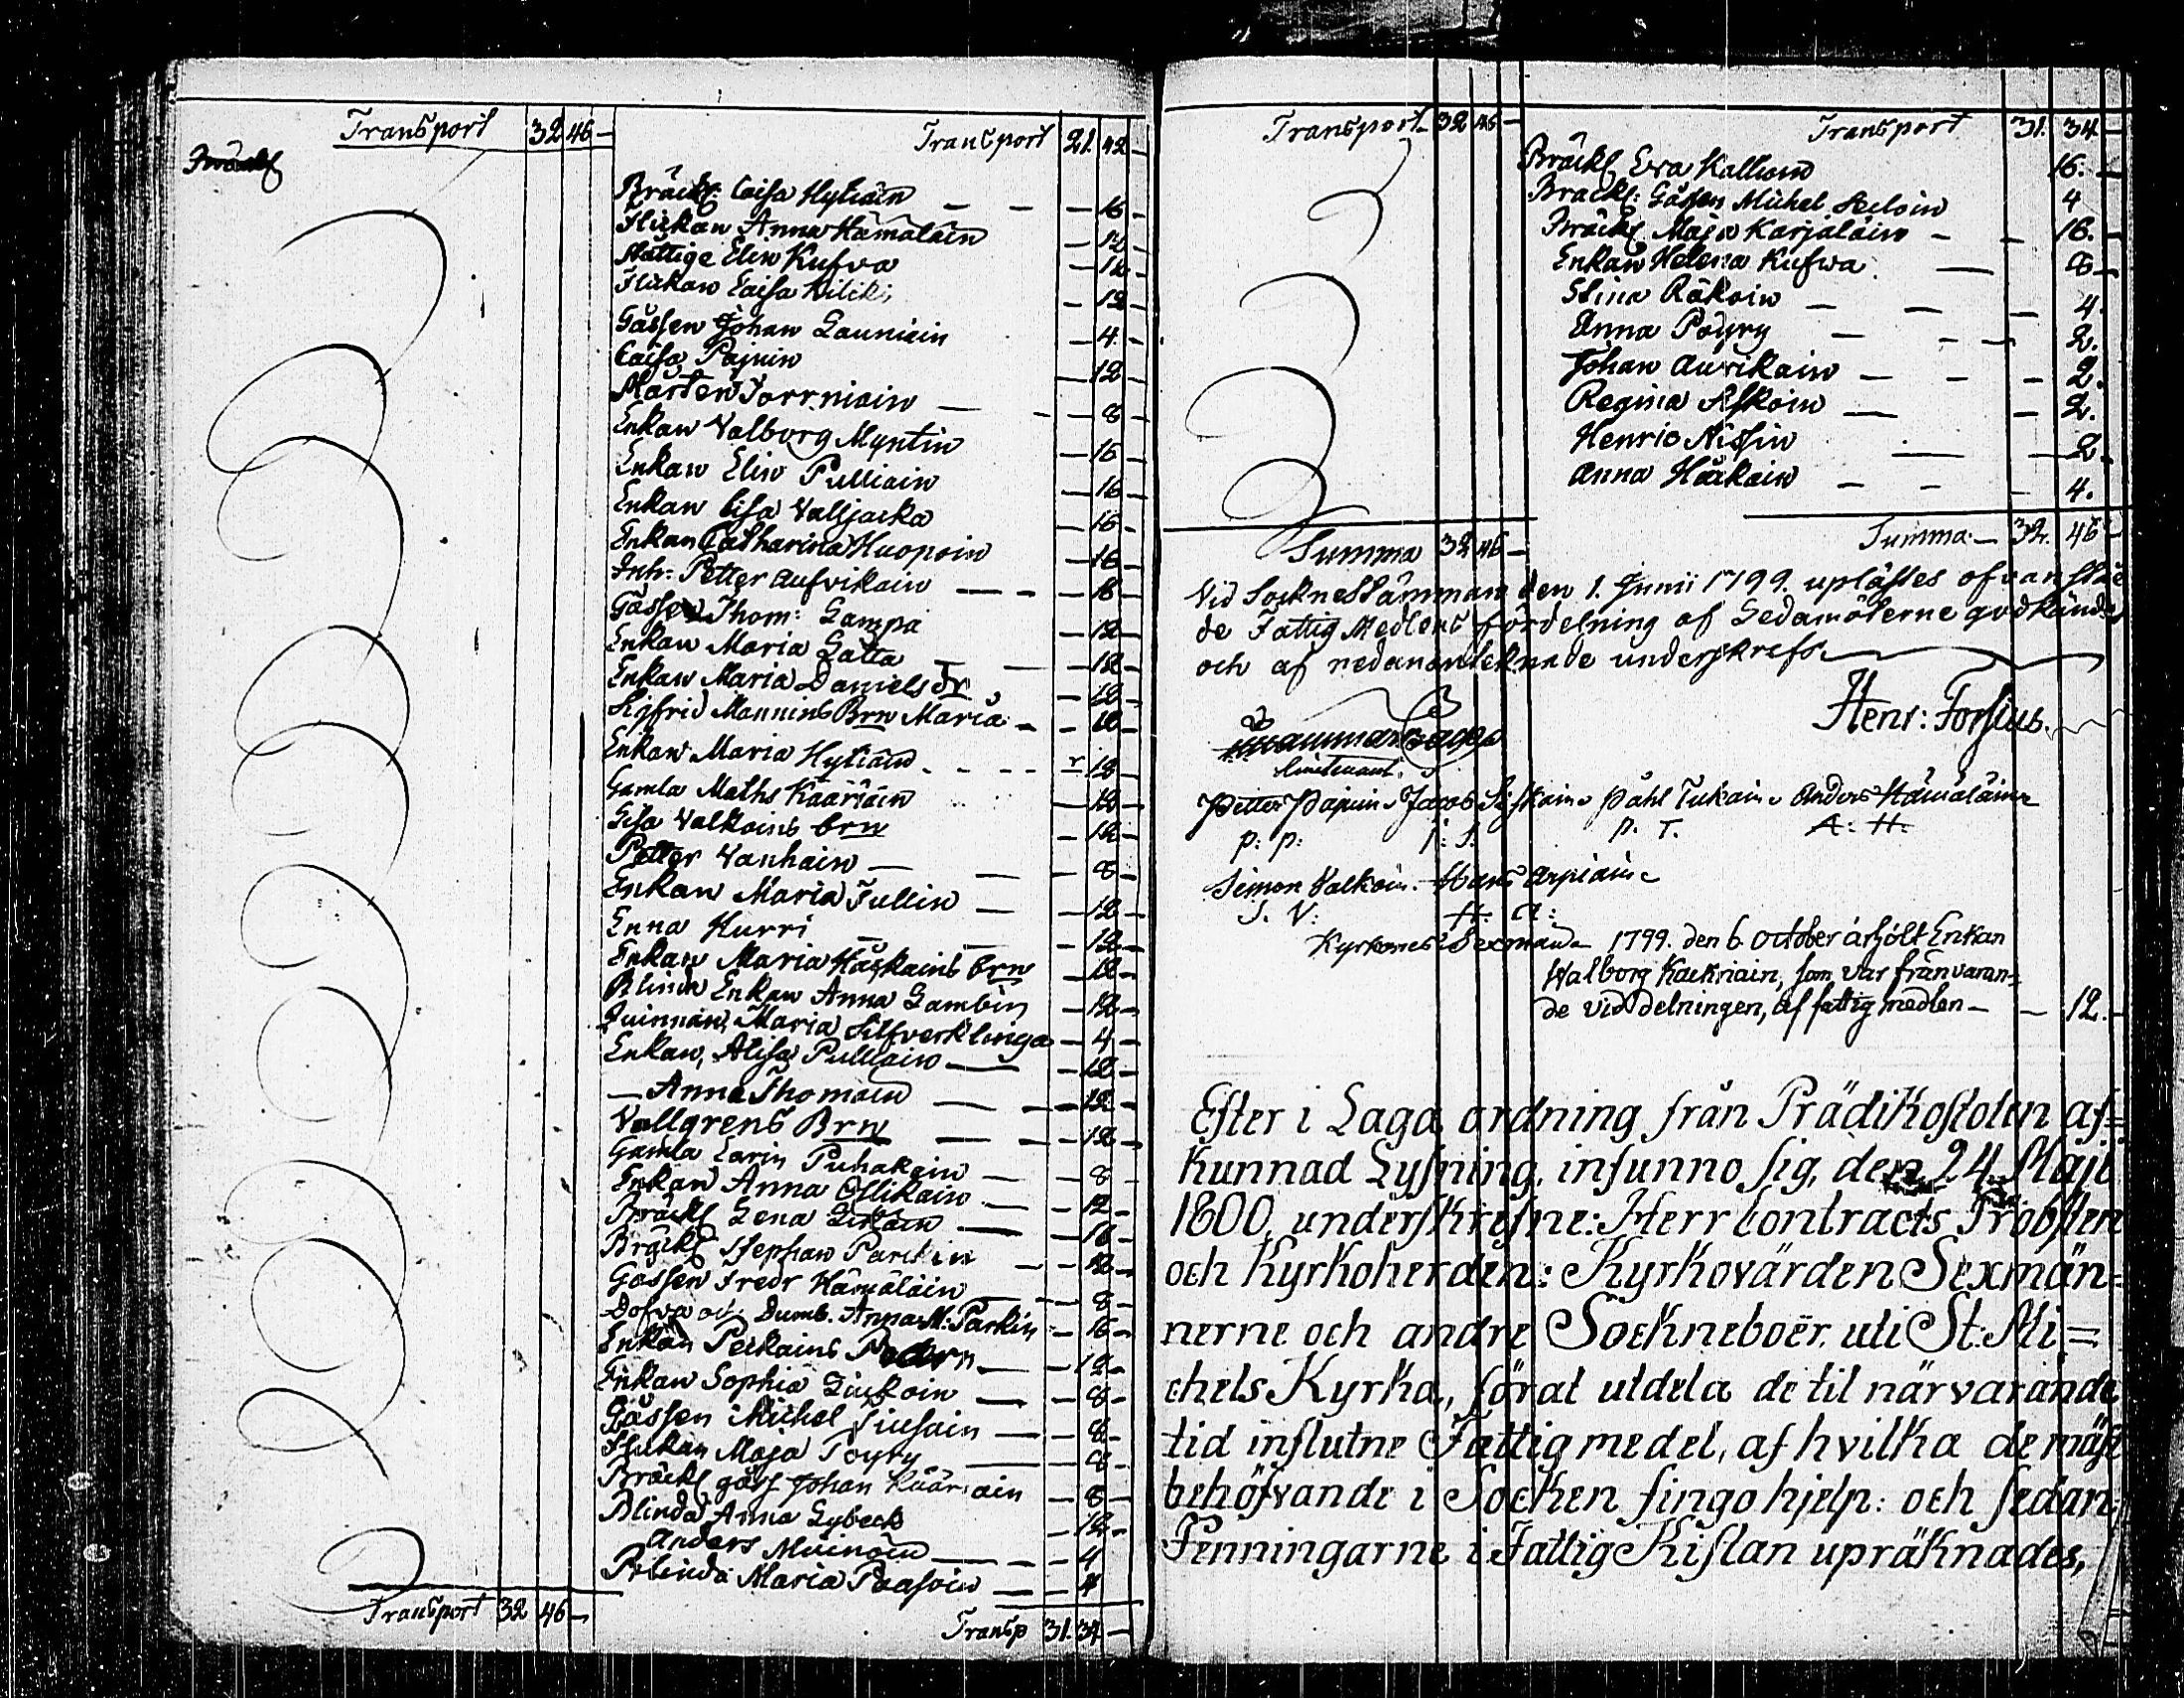 Transport 32 46 —
Transport 21. 42 —
Bräckl: Caisa Hytiäin — — — 16 —
Flickan Anna Hämäläin — 12 —
Fattige Elin Kufva — 12 —
Flickan Caisa — 12 —
Gåssen Johan Launiain — 4 —
Caisa Pajuin — 12 —
Mårten Torrniain — — 8 —
Enkan Valborg Myntin — 16 —
Enkan Elin Pulliain — 16 —
Enkan Lisa Valljacka — 16 —
Enkan Catharina Huopoin — 16 —
Inh: Petter Aufvikain — — — 16 —
Gåssen Thom: Lampa — 12 —
Enkan Maria Latta — 12 —
Enkan Maria Daniels Dr — 12 —
Sigfrid Mannins Brn Maria — — 12 —
Enkan Maria Hytiäin — 12 —
Gamla Maths Kääriäin — 12 —
Lisa Valkoins brn — 12 —
Petter Vanhain — — — 8 —
Enkan Maria Tullin — — 12 —
Enna Hurri — — — 12 —
Enkan Maria Häskains brn — 12 —
Blinda Enkan Anna Lambin — 12 —
Quinnan, Maria Silfverklinga — 4 —
Enkan, Alisa Pulliain — — 12 —
— Anna Thomäin — — — 12 —
Vallgrens Brn — — — 12 —
Gamla Carin Puhakain — — 8 —
Enkan Anna Ollikain — — 12 —
Bräckl Lena — — 16 —
Bräckl Stephan Parckin — — 12 —
Gossen Fredr Hämäläin — — 8 —
Dofva och Dumb. Anna M: Parkin — 16 —
Enkan Peckains — — 12 —
Enkan Sophia Liuckoin — — 8 —
Gåssen Michel Siusain — — 8 —
Flickan Maja Töyry — — 8 —
Bräckl gåss Johan Kääriain — 8 —
Blinda Anna Lybeck — 12 —
Anders Muinoin — — — 4
Blinda Maria Paasoin — — 4
Transport 32 46 —
Transp 31. 34 —
Transport 32 46 —
Transport 31. 34 —
Bräckl Eva Kallium 16. —
Bräckl: Gåssen Michel 4
Bräckl Maja Karjalain — — 16. —
Enkan Helena Kufva — 8 —
Stina Räkoin — — — 4.
Anna Pöyry — — — 2.
Johan Aufvikain — — — 2.
Regina — — 2.
Henric Nissin — — 2.
Anna Häckain — — — 4.
Summa 32 46 —
Summa — 32. 46 —
Vid Sockne Stämman den 1. Junii 1799. uplästes ofvanståe
de Fattig Medlens fördelning af Ledamöterne godkändes
och af nedanantecknade underskrefs
Henr: Forsius.
Lieutenant.
Petter Pajuin Jacob Siskain Påhl Tukain Anders Hämäläin
P: P: J: S: P. T. A: H:
Simon Valkoin. Hans Arpiain
S. V: H: A:
Kyrkones Sexmän
1799. den 6 October ärhölt Enkan
Walborg Kackriain, som var frånvaran-
de vid delningen, af fattig medlen — — 12. —
Efter i Laga ordning från Prädikostolen af=
kunnad Lysning, infunno sig, den 24 Maji
1800, underskrefne: Herr Contracts Pröbsten
och Kyrkoherden: Kyrkovärden Sexmän=
nerne och andre Sockneboer, uti St: Mi=
chels Kyrka, förat utdela de til närvarande
tid influtne Fattig medel, af hvilka de mäst
behöfvande i Socken fingo hjelp: och sedan
Penningarne i Fattig Kistan upräknades,